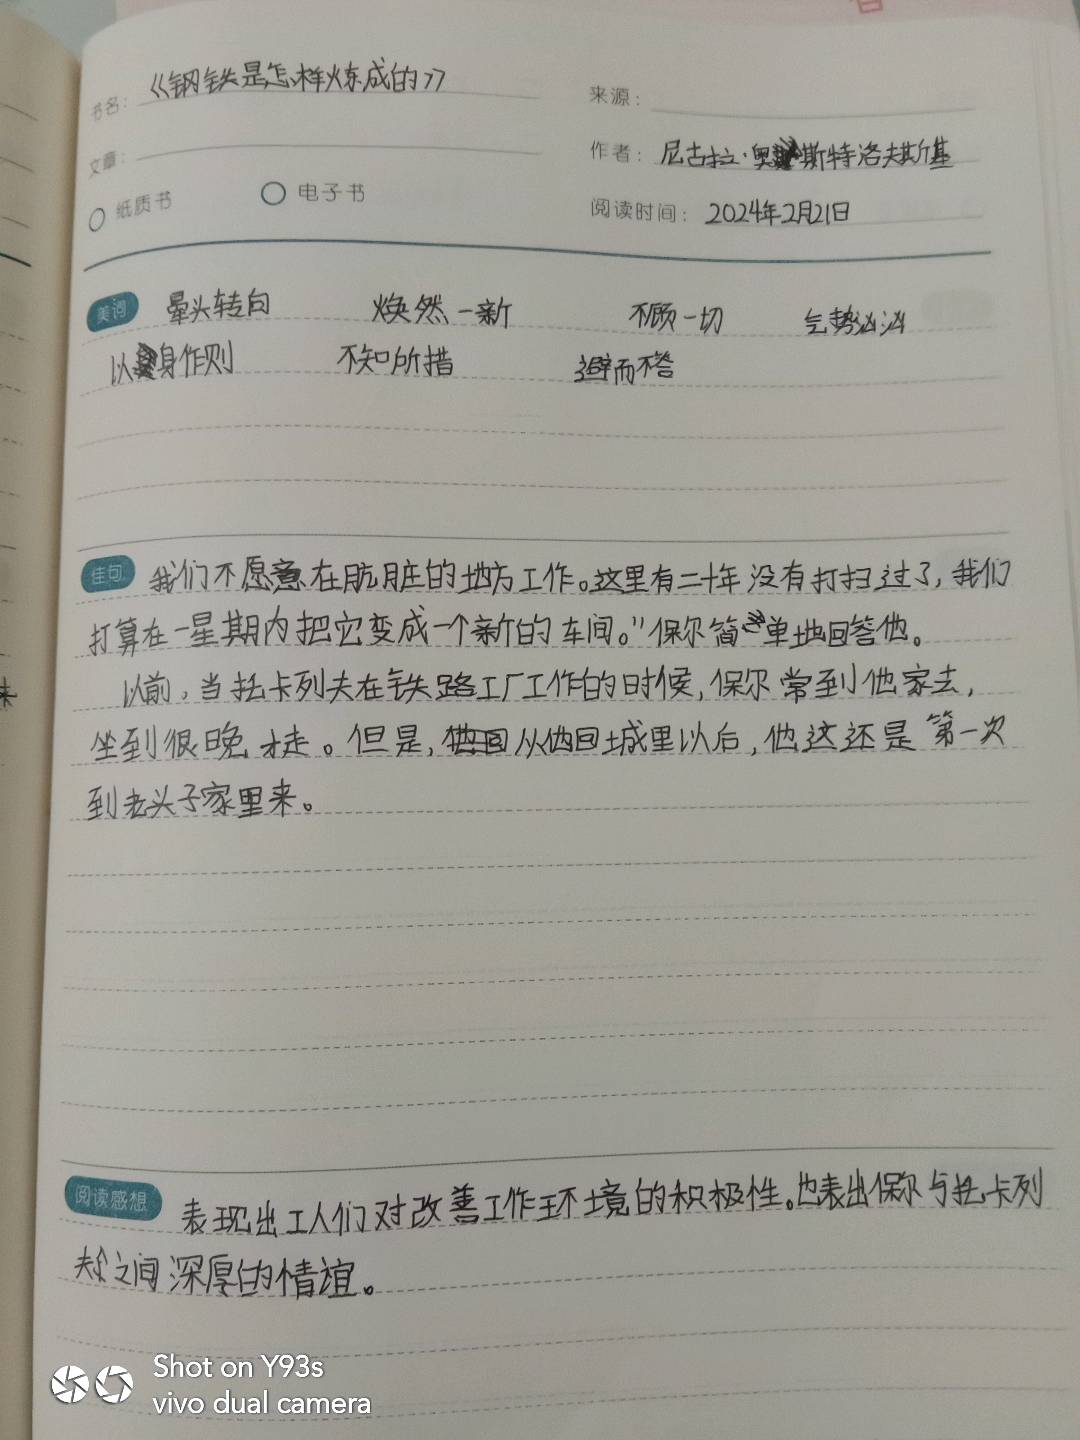 书名：《钢铁是怎样炼成的》
来源：
文章：
作者：尼古拉·奥斯特洛夫斯基
纸质书 电子书
阅读时间：2024年2月21日
美词 晕头转向 焕然一新 不顾一切 气势汹汹
以身作则 不知所措 避而不答
佳句 我们不愿意在肮脏的地方工作。这里有二十年没有打扫过了，我们
打算在一星期内把它变成一个新的车间。"保尔简单地回答他。
以前，当托卡列夫在铁路工厂工作的时候，保尔常到他家去，
坐到很晚才走。但是，从他回城里以后，他这还是第一次
到老头子家里来。
阅读感想 表现出工人们对改善工作环境的积极性。也表出保尔与托卡列
夫之间深厚的情谊。
Shot on Y93s
vivo dual camera